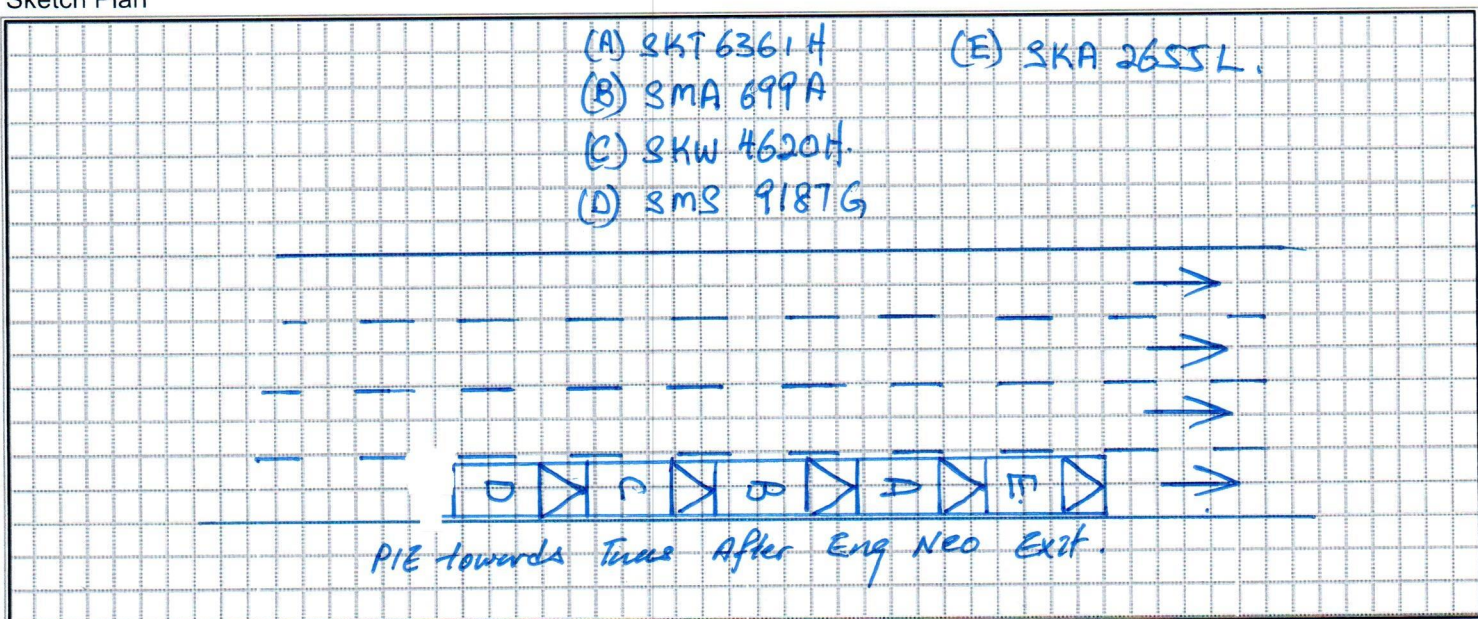 Sketch Plan
(A) SKT 6361 H
(B) SMA 699A
(C) SKW 4620H.
(D) SMS 9187G
(E) SKA 2655L.
D C B A E
PIE towards Tuas After Eng Neo Exit.